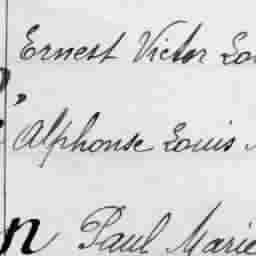 Ernest Victor
Alphonse Louis
Paul Marie